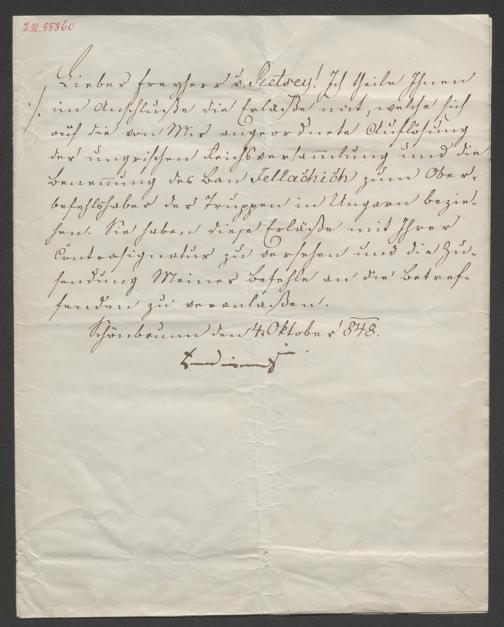 J.N. 55360
Lieber Freyherr v. Retsey! Ich theile Ihnen
./. im Anschluße die Erläße mit, welche sich
auf die von Mir angeordnete Auflösung
der ungrischen Reichsversammlung und die
Benennung des Ban Jellachich zum Ober-
befehlshaber der Truppen in Ungarn bezie-
hen. Sie haben diese Erläße mit Ihrer
Contrasignatur zu versehen und die Zu-
sendung Meiner Befehle an die Betref-
fenden zu veranlaßen.
Schönbrunn den 4. Oktober 848.
Ferdinand